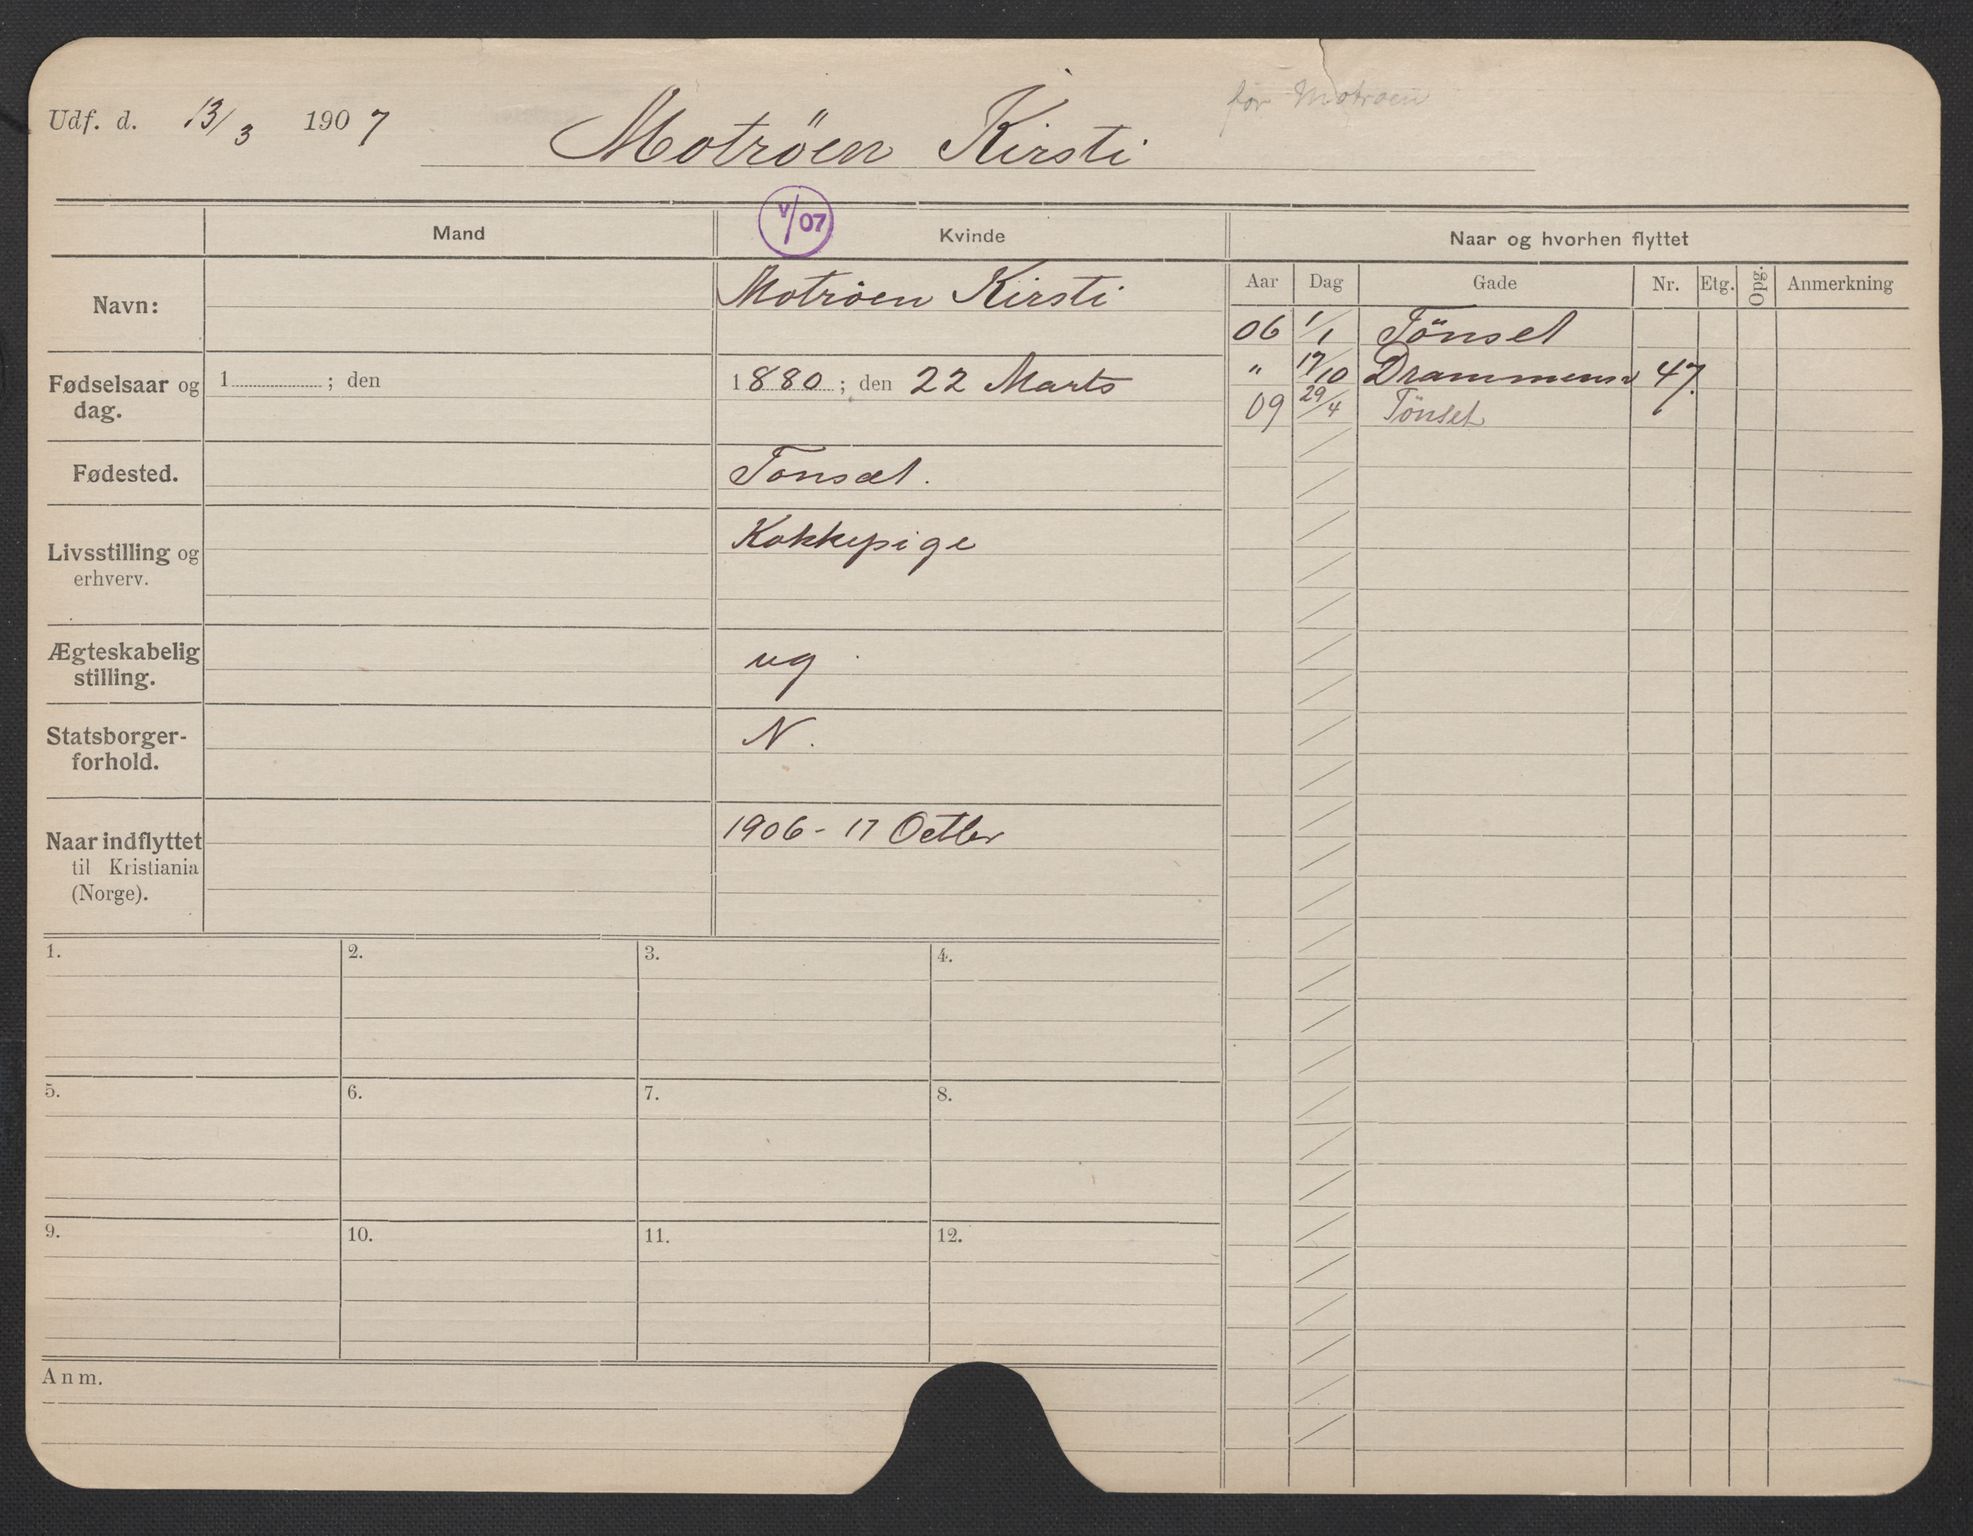 Udf. d. 13/3 1907
Motröen Kirsti
før Motroen
Mand
Kvinde
V/07
Naar og hvorhen flyttet
Aar Dag Gade Nr. Etg. Opg. Anmerkning
Navn:
Motröen Kirsti
06 1/1 Tönset
" 17/10 Drammensv 47.
09 29/4 Tönset
Fødselsaar og
dag.
1 ; den
1880 ; den 22 Marts
Fødested.
Tonset.
Livsstilling og
erhverv.
Kokkepige
Ægteskabelig
stilling.
ug.
Statsborger-
forhold.
N.
Naar indflyttet
til Kristiania
(Norge).
1906 - 17 Octbr
1. 2. 3. 4.
5. 6. 7. 8.
9. 10. 11. 12.
Anm.